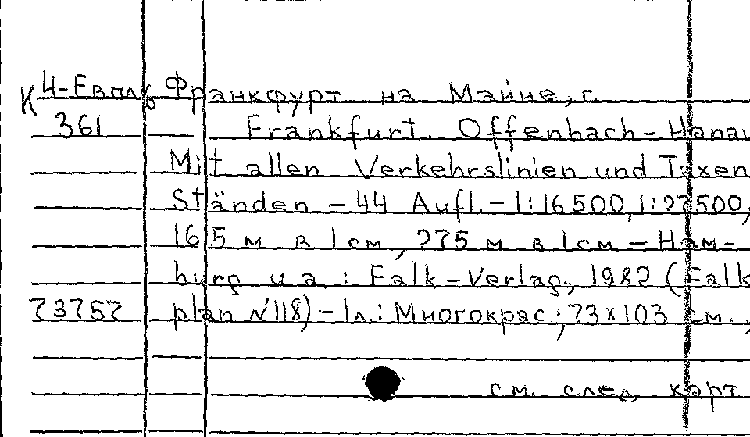 К 4-Европ Франкфурт на Майне, г.
361 Frankfurt. Offenbach-Hanau
Mit allen Verkehrslinien und Taxen
Ständen - 44 Aufl. - 1:16500, 1:27500,
165 м в 1 см, 275 м в 1 см - Ham-
burg u.a.: Falk-Verlag, 1982 (Falk
73757 plan №118) - 1 л.: Многокрас; 73x103 см.,
см. след. карт